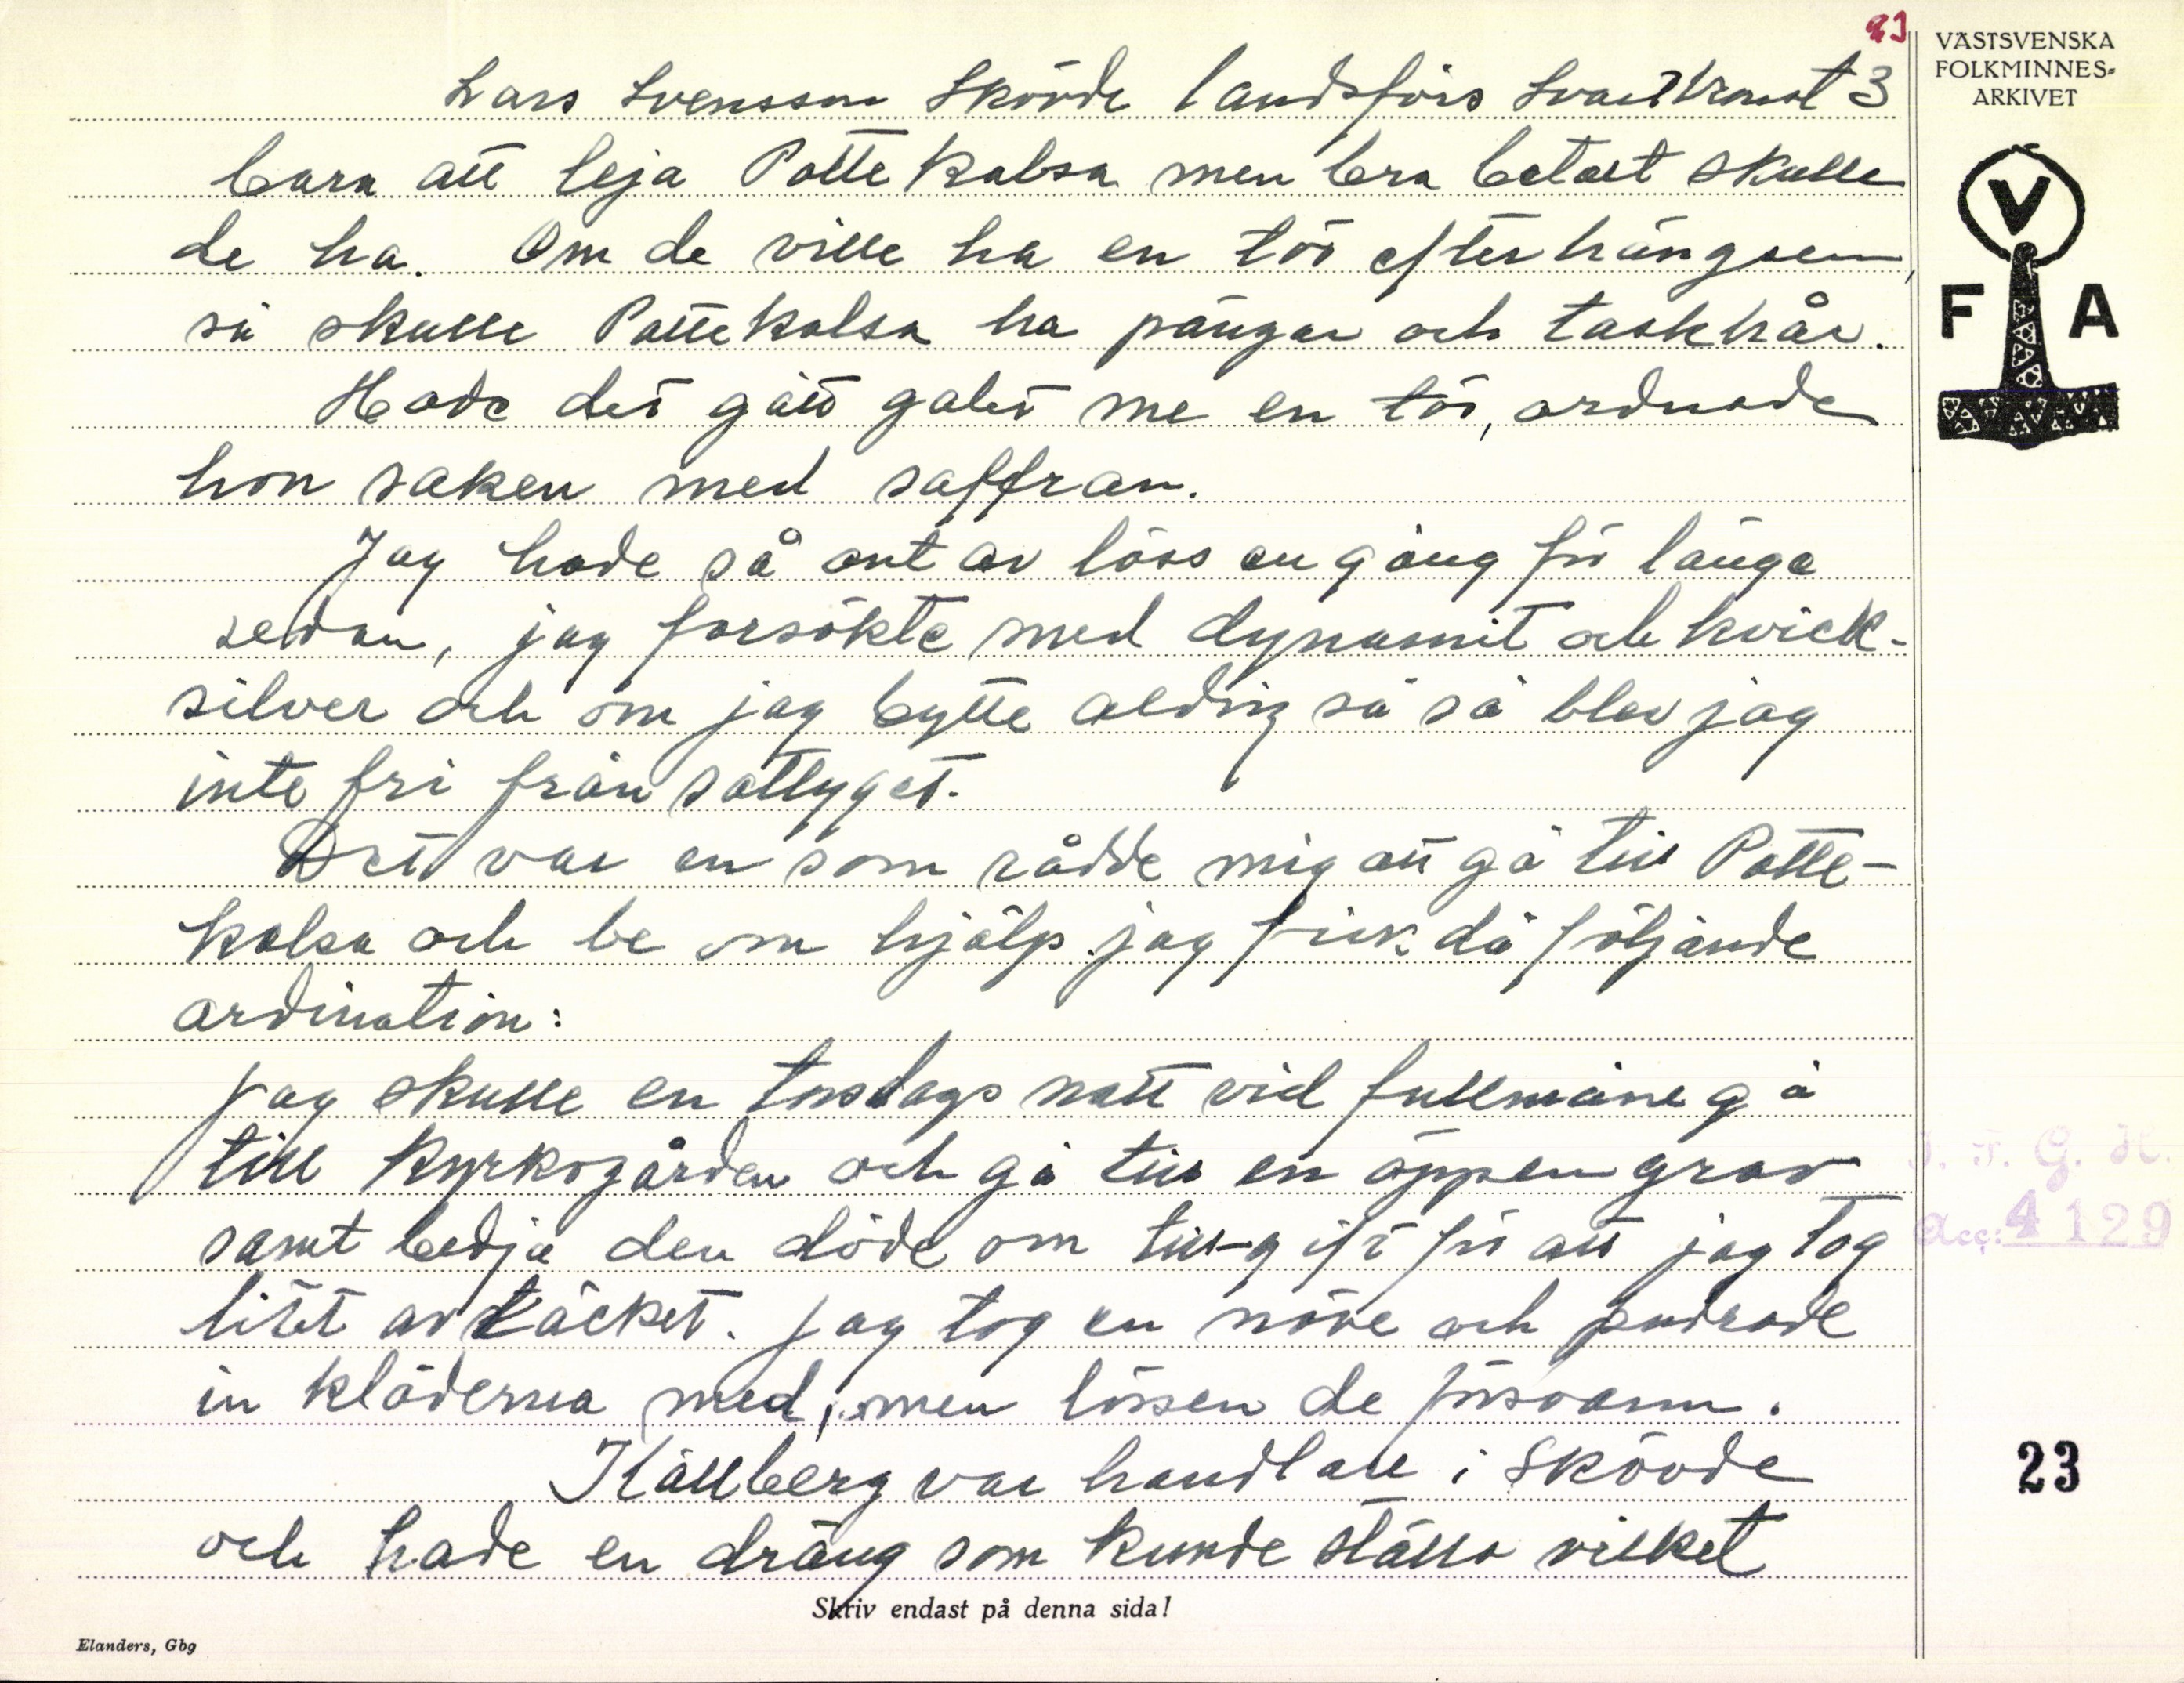 23
VÄSTSVENSKA
FOLKMINNES-
ARKIVET
V
F A
Lars Svensson Skövde landsförs 3
bara att leja Pottekalsa men bra betalt skulle
de ha. Om de ville ha en tös efterhängsen,
så skulle Pottekalsa ha pängar och taskhår.
Hade det gått galet me en tös, ordnade
hon saken med saffran.
Jag hade så ont av löss en gång för länge
sedan, jag forsökte med dynamit och kvick-
silver och om jag bytte aldrig så så blev jag
inte fri från sattyget.
Det var en som rådde mig att gå till Potte-
kalsa och be om hjälp. jag fick då följande
ordination:
Jag skulle en torsdags natt vid fullmåne gå
till Kyrkogården och gå till en öppen grav
samt bedja den döde om till-gift för att jag tog
litet av täcket. Jag tog en näve och pudrade
in kläderna med, men lössen de försvann.
Källberg var handlare i Skövde
och hade en dräng som kunde ställa vilket
Skriv endast på denna sida!
Elanders, Gbg
I. F. G. H.
Acc: 4129
23